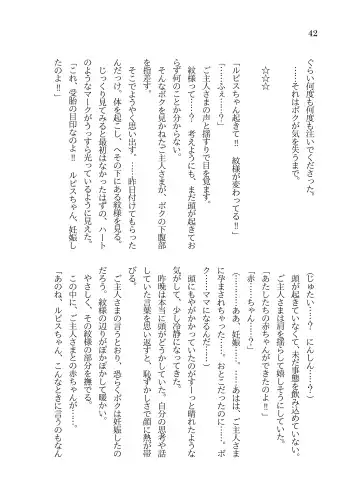 42
ぐらい何度も何度も注いでくださった。
……それはボクが気を失うまで。
☆☆☆
「ルビスちゃん起きて‼　紋様が変わってる‼」
「……ふぇ……？」
ご主人さまの声と揺すりで目を覚ます。
紋様って……？　考えようにも、まだ頭が起きてお
らず何のことか分からない。
そんなボクを見かねたご主人さまが、ボクの下腹部
を指差す。
そこでようやく思い出す。……昨日付けてもらった
んだっけ。体を起こし、へその下にある紋様を見る。
じっくり見てみると最初はなかったはずの、ハート
のようなマークがうっすら光っているように見えた。
「これ、受胎の目印なのよ‼　ルビスちゃん、妊娠し
たのよ‼」
（じゅたい……？　にんしん……？）
頭が起きていなくて、未だ事態を飲み込めていない。
ご主人さまは肩を揺らして嬉しそうにしていた。
「あたしたちの赤ちゃんができたのよ‼」
「赤……ちゃん……？」
（………ああ、妊娠……。……あはは、ご主人さま
に孕まされちゃった……。おとこだったのに……。ボ
ク……ママになるんだ……）
頭にもやがかかっていたのがすーっと晴れたような
気がして、少し冷静になってきた。
昨晩は本当に頭がどうかしていた。自分の思考や話
していた言葉を思い返すと、恥ずかしさで顔に熱が帯
びる。
ご主人さまの言うとおり、恐らくボクは妊娠したの
だろう。紋様の辺りがぽかぽかして暖かい。
やさしく、その紋様の部分を撫でる。
この中に、ご主人さまとの赤ちゃんが……。
「あのね、ルビスちゃん、こんなときに言うのもなん